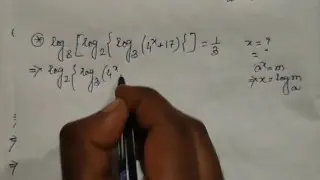 * log₈[log₂{log₃(4ˣ+17)}]=1/3 x = ?
= ?
⇒ log₂{log₃(4ˣ aˣ=m
⇒ x=logₐm
⇒
⇒